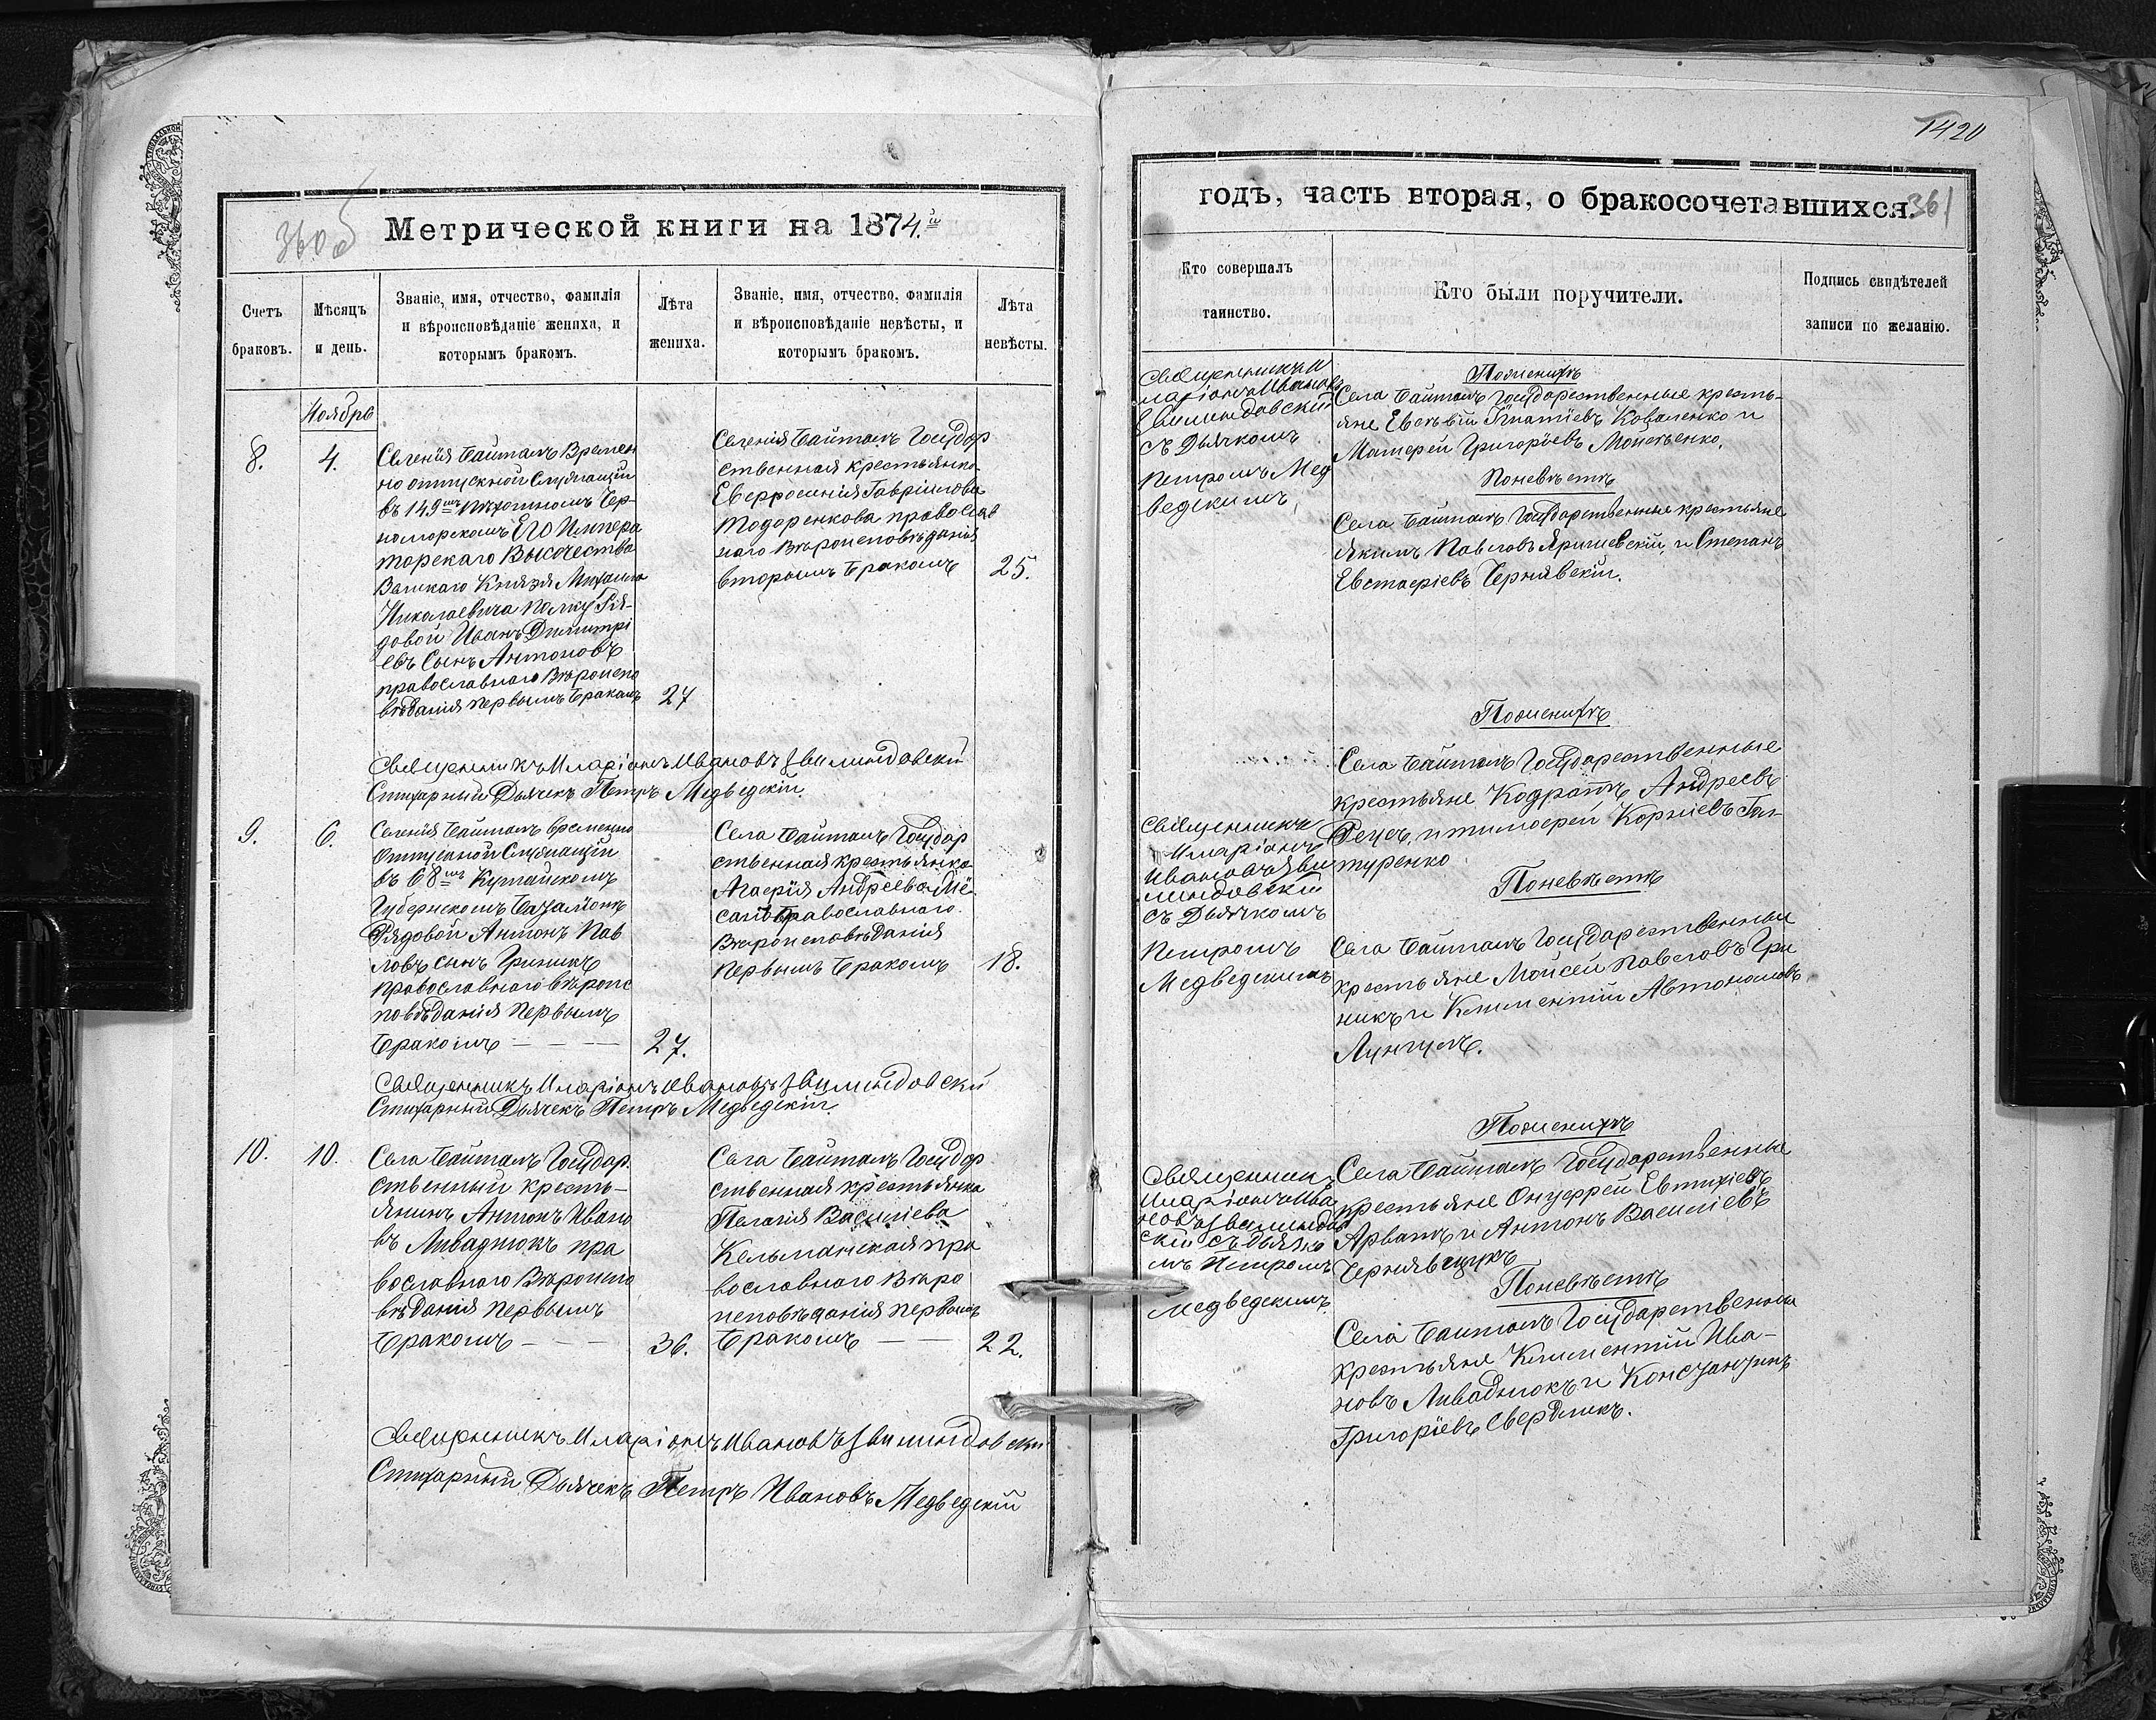 360 об
Метрической книги на 1874.й
Счетъ браковъ.
Мѣсяцъ и день.
Званіе, имя, отчество, фамилія
и вѣроисповѣданіе жениха, и
которымъ бракомъ.
Лѣта жениха.
Званіе, имя, отчество, фамилія
и вѣроисповѣданіе невѣсты, и
которымъ бракомъ.
Лѣта невѣсты.
Ноябрь
8.
4.
Селенія Байталъ Времен
но отпускной Служащій
въ 149мъ пѣхотномъ Чер-
номорскомъ Его Импера
торскаго Высочества
Великаго Князя Михаила
Николаевича полку Ря-
довой Иванъ Димитрі
евъ Сынъ Антоновъ
православнаго Вѣроиспо
вѣданія первымъ бракомъ
27
Селенія Байталъ Государ
ственная крестьянка
Евфросинія Гавріилова
Тодоренкова православ
наго Вѣроисповѣданія
вторымъ бракомъ
25.
Священникъ Иларіонъ Ивановъ
Стихарный Дьячекъ Петръ Медведскій.
9.
6.
Селенія Байталъ временно
Отпускной Служащій
въ 68мъ
Губернскомъ Баталіонѣ
Рядовой Антонъ Пав
ловъ сынъ Гриникъ
Православнаго вѣроис
повѣданія Первымъ
бракомъ
27.
Села Байталъ Государ
ственная крестьянка
Агафія Андреева
Православнаго
Вѣроисповѣданія
первымъ бракомъ
18.
Священникъ Иларіонъ Ивановъ
Стихарный Дьячекъ Петръ Медведскій.
10.
10.
Села Байталъ Государ
ственный кресть-
янинъ Антонъ Ивано
въ Ливаднюкъ пра
вославнаго Вѣроиспо
вѣданія первымъ
бракомъ
36.
Села Байталъ Государ
ственная крестьянка
Пелагія Василіева
Кельманская пра
вославнаго Вѣро
исповѣданія первымъ
бракомъ
22.
Священникъ Иларіонъ Ивановъ
Стихарный Дьячекъ Петръ Ивановъ Медведскій
1420
годъ, часть вторая, о бракосочетавшихся.
361
Кто совершалъ
таинство.
Кто были поручители.
Подпись свидѣтелей
записи по желанію.
Священникъ И
ларіонъ Ивановъ
съ Дьячкомъ
Петромъ Мед
ведскимъ,
По женихѣ
Села Байталъ Государственные кресть-
яне Евсевій Игнатіевъ Коваленко и
Матфей Григоріевъ
По невѣстѣ
Села Байталъ Государственные крестьяне
Якимъ Павловъ Яришевскій, и Степанъ
Евстафіевъ Чернявскій.
Священникъ
Иларіонъ
Ивановъ
съ Дьячкомъ
Петромъ
Медведскимъ
По женихѣ
Села Байталъ Государственные
крестьяне Кодратъ Андреевъ
и Тимофей Корніевъ Гон-
туренко
По невѣстѣ
Села Байталъ Государственные
крестьяне Мойсей Павловъ Гри
никъ и Климентій Автономовъ
Лунгулъ.
Священникъ
Иларіонъ Ива
новъ
скій съ дьячко
мъ Петромъ
Медведскимъ
По женихѣ
Села Байталъ Государственные
крестьяне Онуфрей Евтихіевъ
Арватъ и Антонъ Василіевъ
По невѣстѣ
Села Байталъ Государственные
крестьяне Климентій Ива-
новъ Ливаднюкъ и Константинъ
Григоріевъ Свердликъ.